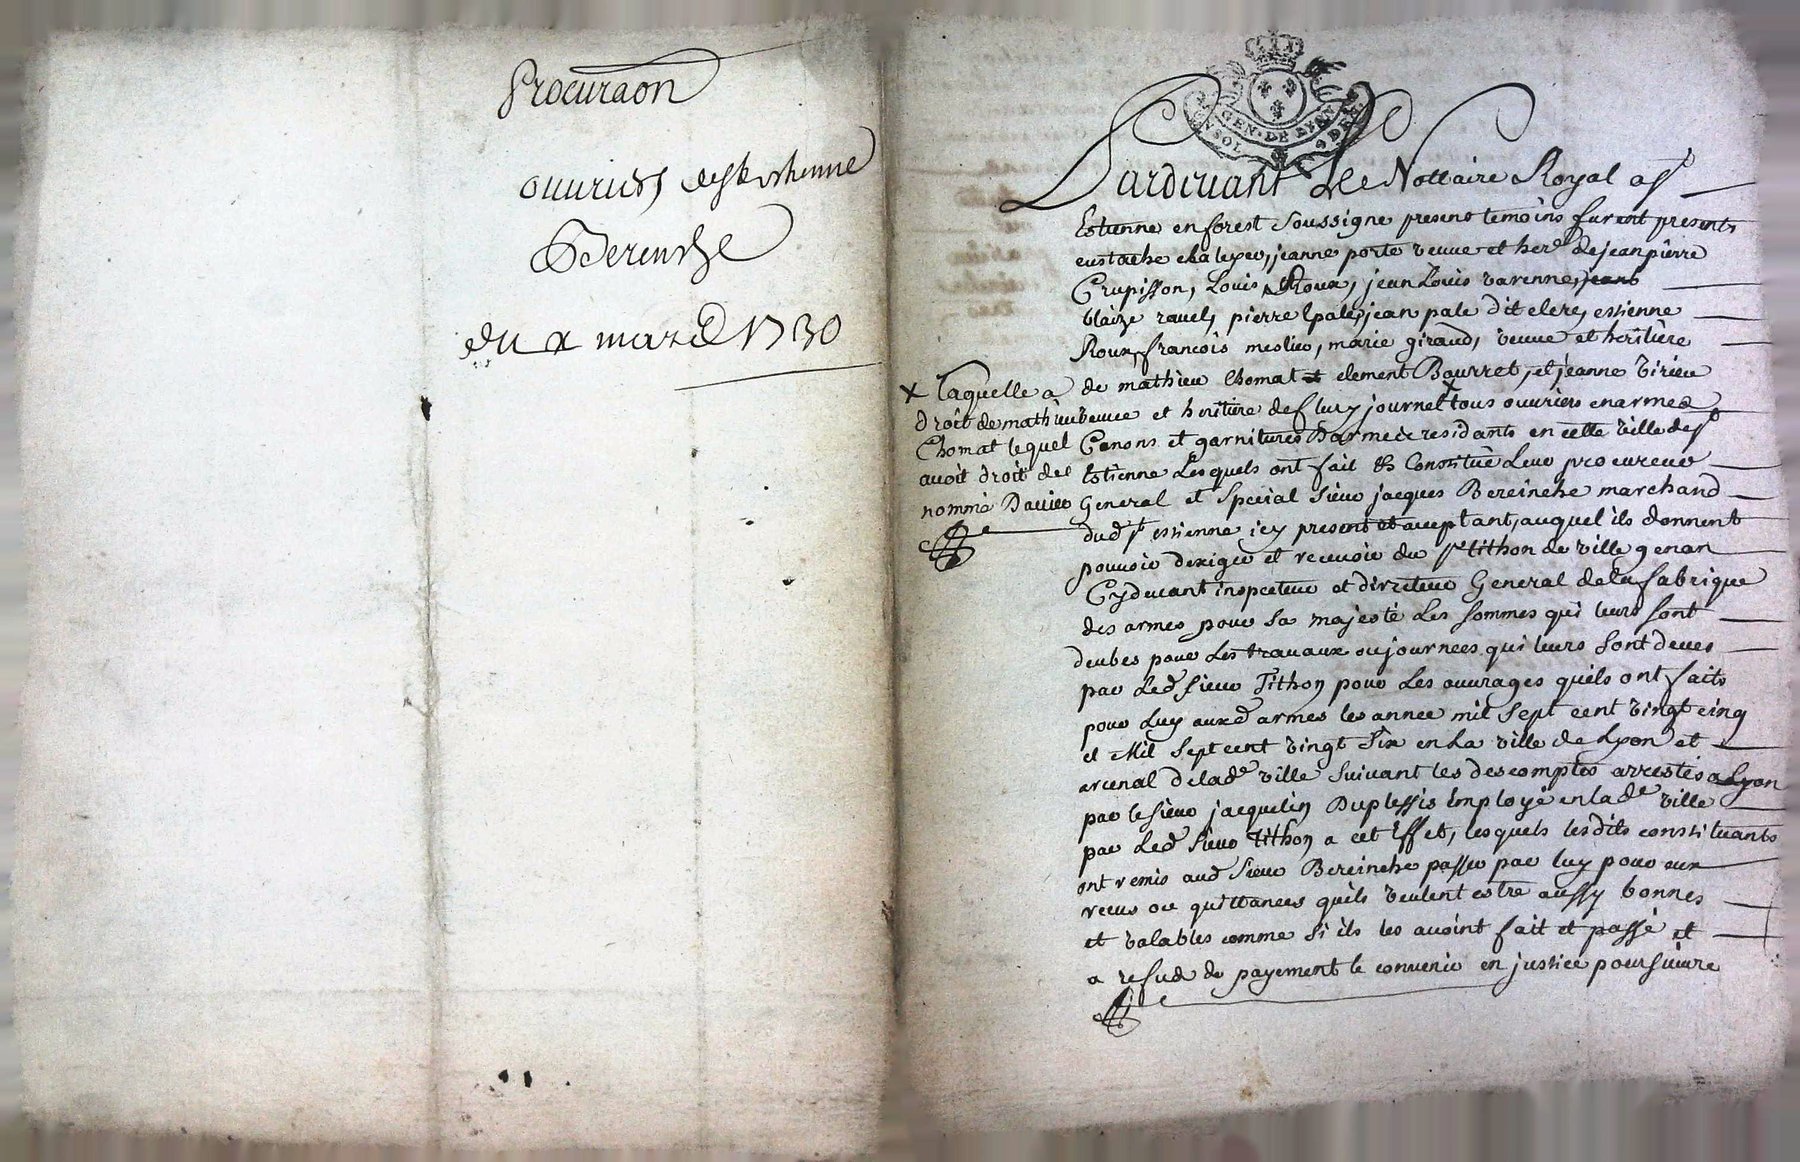 Procuraon
ouvriers de st estienne
Bereinche
du x mars 1730
GEN. DE LYON
Pardevant Le Nottaire Royal a st
Estienne en forest soussigne presens temoins furent presents
eustache chaleyer, jeanne porte veuve et herre de jean pierre
Crupisson, Louis Roux, jean Louis varenne, jean
blaize ravel, pierre pale, jean pale dit clere, estienne
Roux, francois meslier, marie giraud, veuve et heritiere
de mathieu Chomat et clement Bourret, et jeanne virieu
veuve et heritiere de fleury journel x tous ouvriers en armes
Canons et garnitures Darmes residants en cette ville de st
Estienne Lesquels ont fait et Constitué Leur procureur
General et Special Sieur jacques Bereinche marchand
dud st estienne icy present et aceptant, auquel ils donnent
pouvoir dexiger et recevoir du sr tithon de ville genon
Cydevant inspecteur et directeur General de la fabrique
des armes pour sa majesté Les sommes qui leurs sont
deubes pour Les travaux ou journees qui leurs sont deues
par Led sieur Tithon pour Les ouvrages quils ont faits
pour Luy auxd armes les annee mil sept cent vingt cinq
et Mil sept cent vingt six en La ville de Lyon et
arcenal de lade ville suivant les descomptes arrestés a Lyon
par le sieur jacquelin Duplessis Employé en lade ville
par Led sieur tithon a cet Effet, lesquels lesdits constituants
ont remis aud sieur Bereinche passer par luy pour eux
recus ou quittances quils veulent estre aussy bonnes
et valables comme si ils les avoint fait et passé et
a refus de payement le convenir en justice poursuivre
x Laquelle a
droit de mathieu
Chomat lequel
avoit droit de
nommé Davier